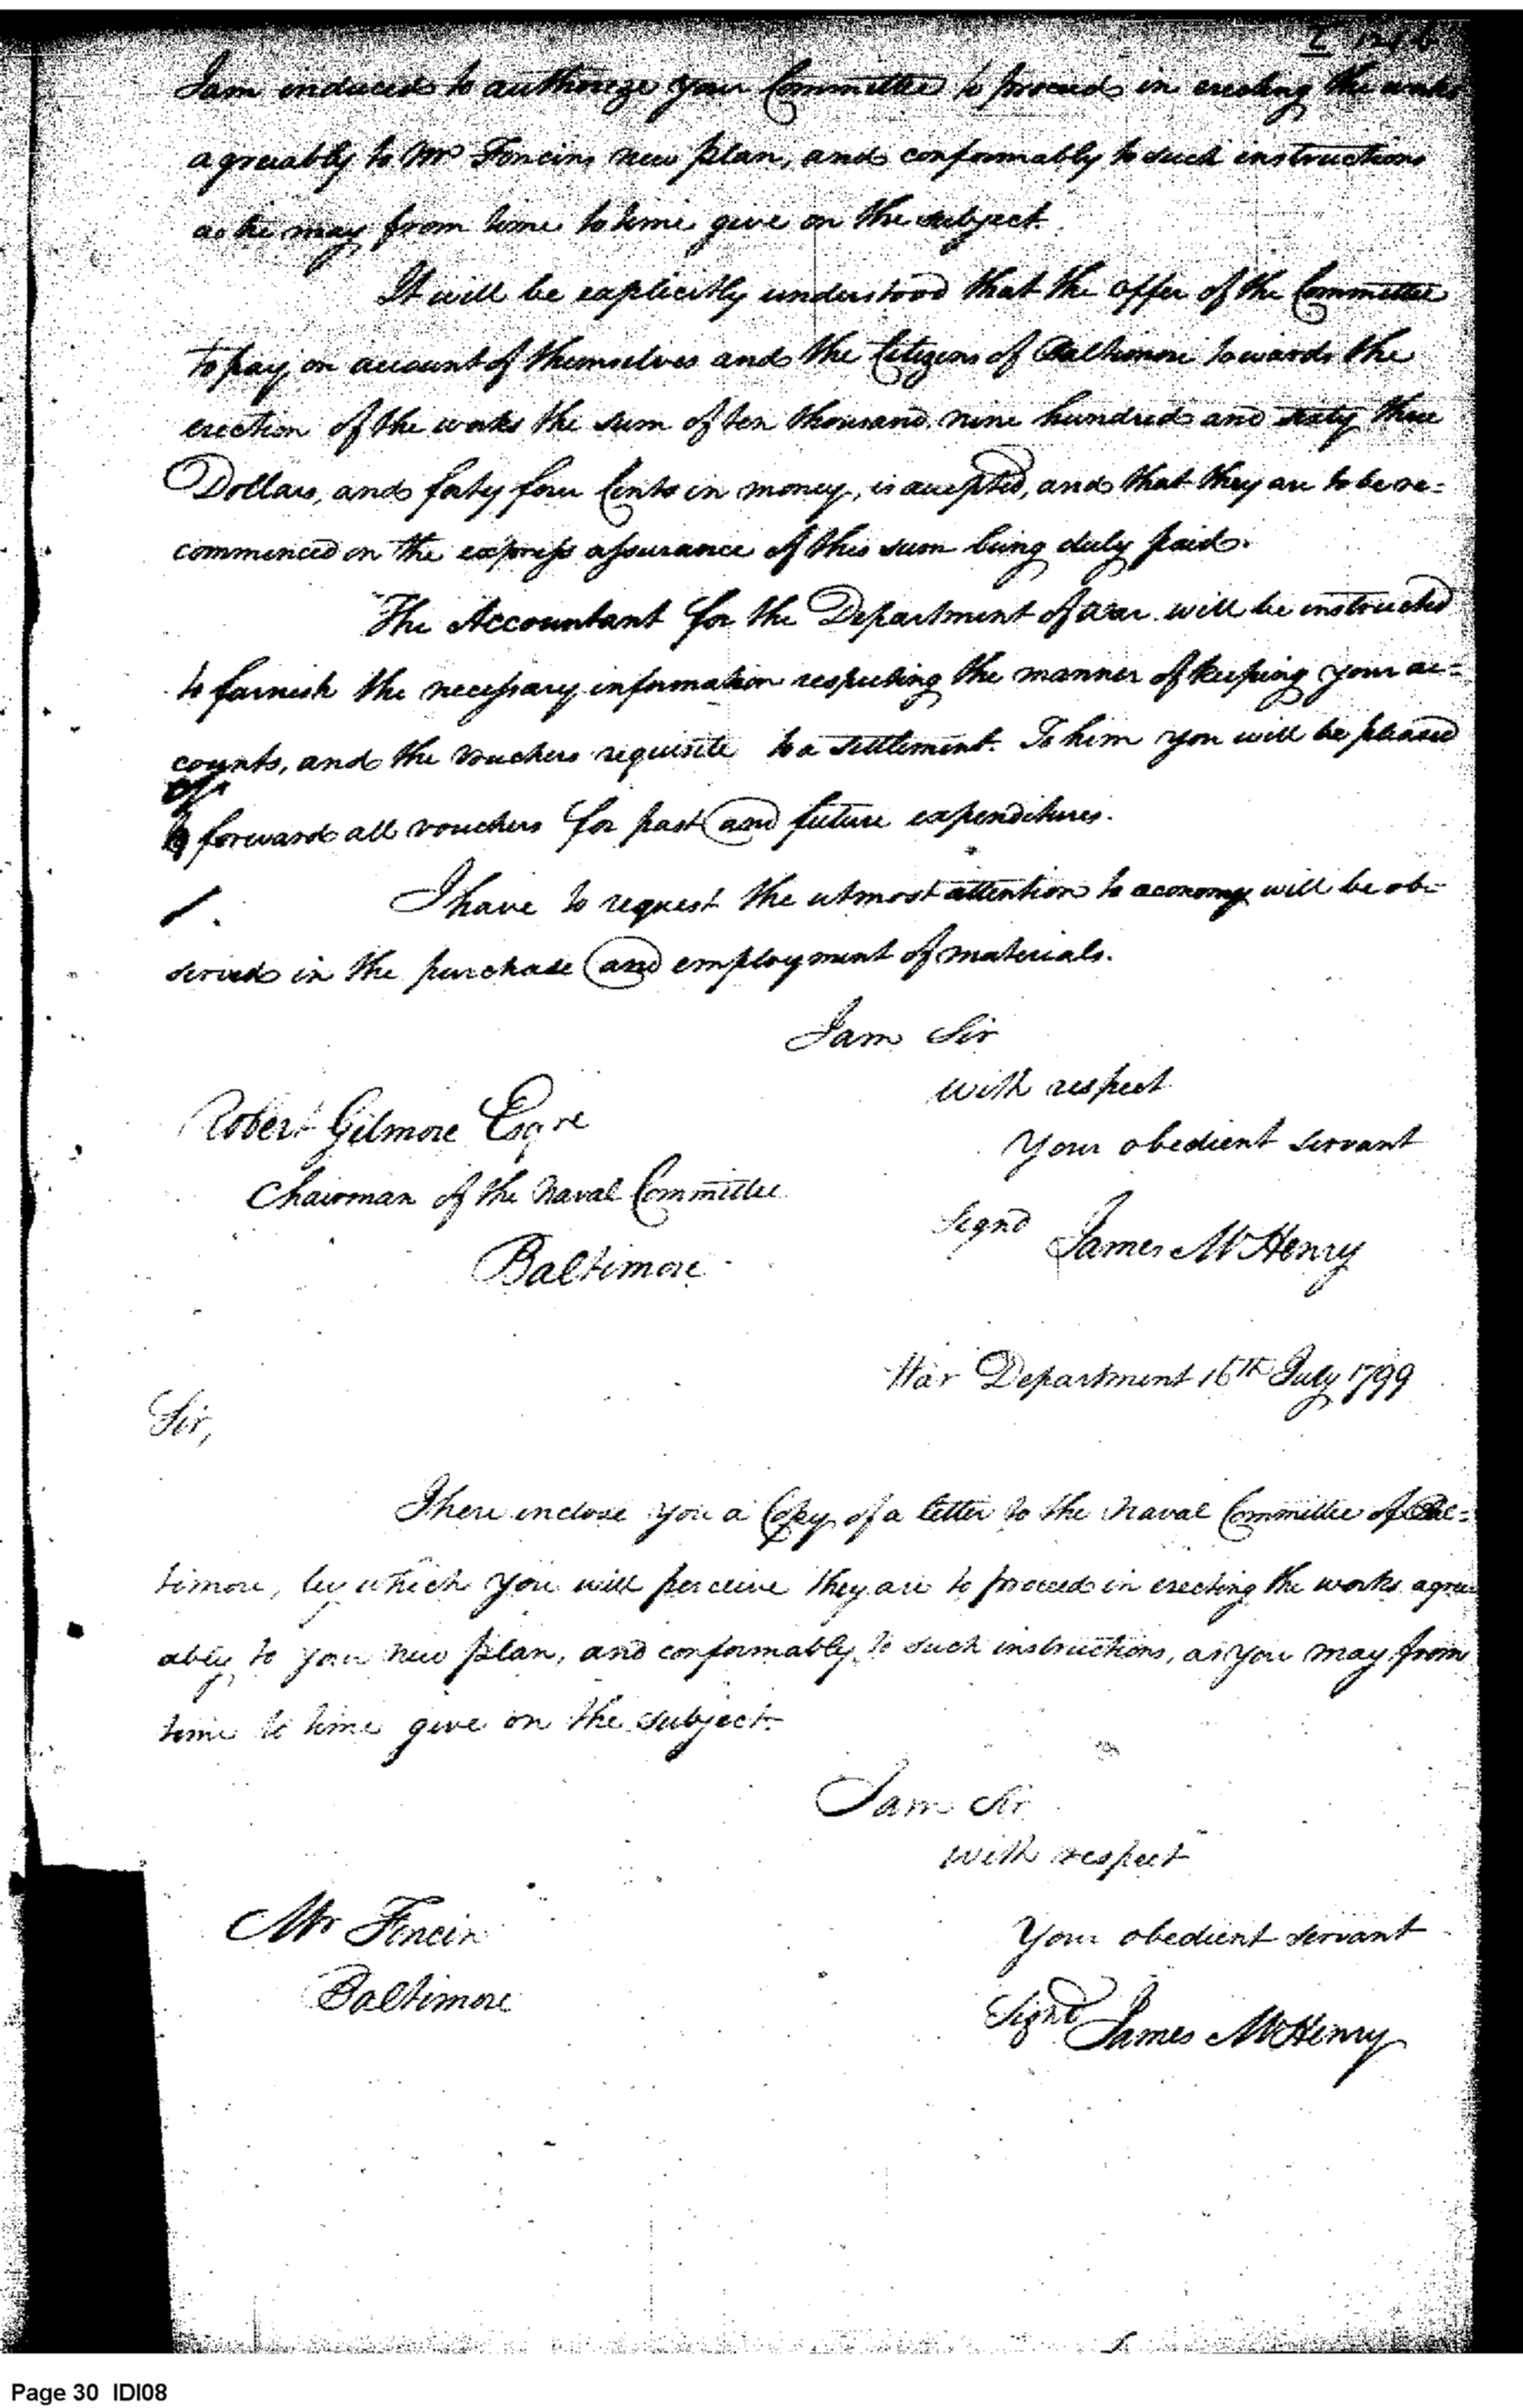 I am induced to authorize your Committee to proceed in erecting the works
agreeably to Mr Foncins new plan, and conformably to such instructions
as he may from time to time give on the subject.
It will be explicitly understood that the offer of the Committee
to pay on account of themselves and the Citizens of Baltimore towards the
erection of the works the sum of ten thousand nine hundred and sixty three
Dollars, and forty four Cents in money, is accepted, and that they are to be re=
commenced on the express assurance of this sum being duly paid.
The Accountant for the Department of War will be instructed
to furnish the necessary information respecting the manner of keeping your ac=
counts, and the vouchers requisite to a settlement. To him you will be pleased
to forward all vouchers for past and future expenditures.
I have to request the utmost attention to œconomy will be ob-
served in the purchase and employment of materials.
I am Sir
with respect
Your obedient servant
Robert Gilmore Esqre
Chairman of the Naval Committee
Baltimore
Signd James McHenry
War Department 16th July 1799
Sir,
I here inclose you a Copy of a letter to the Naval Committee of Bal=
timore, by which you will perceive they are to proceed in erecting the works agree
ably to your new plan, and conformably to such instructions, as you may from
time to time give on the subject.
I am Sir
with respect
Your obedient servant
Mr Foncin
Baltimore
Signd James McHenry
Page 30 IDI08